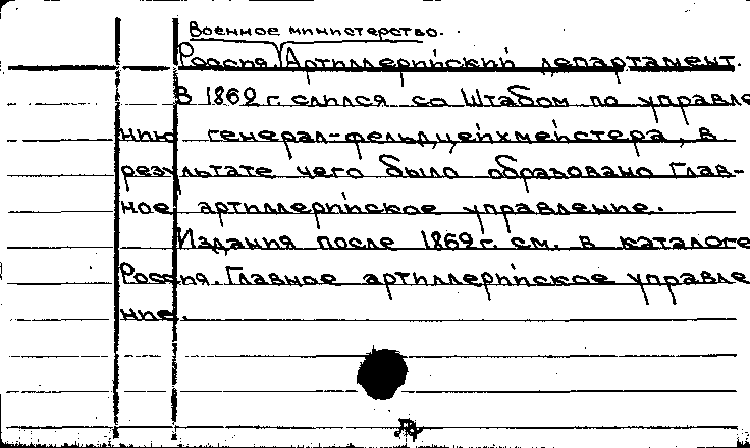 Военное министерство.
Россия. Артиллерийский департамент.
В 1862 г. слился со Штабом по управле
нию генерал-фельдцейхмейстера, в
результате чего было образовано Глав-
ное артиллерийское управление.
Издания после 1862 г. см. в каталоге
Россия. Главное артиллерийское управле
ние.